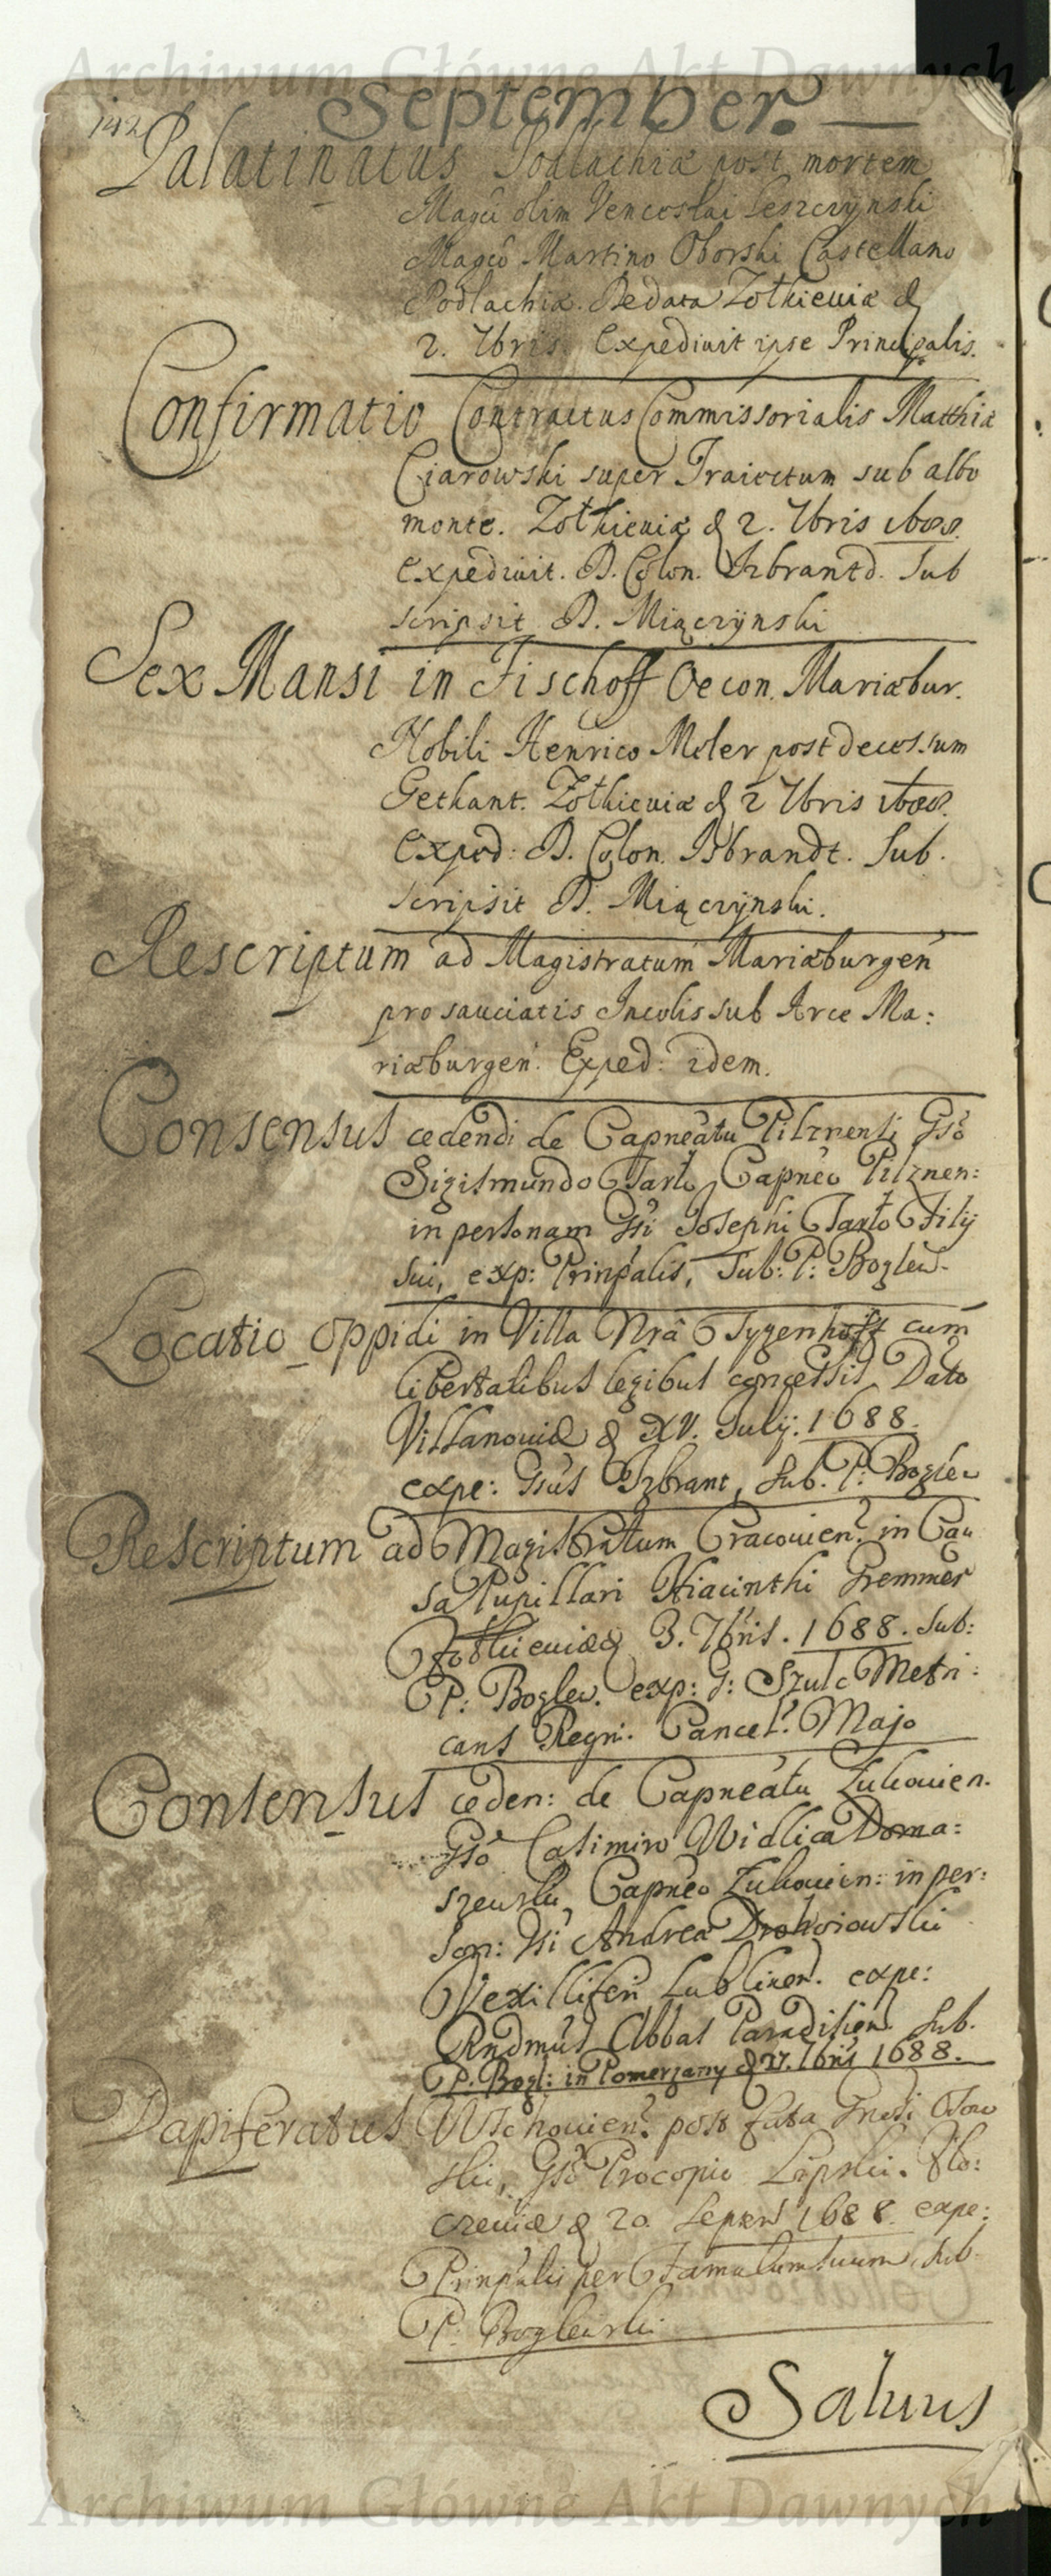 Archiwum Główne Akt Dawnych
142
September.
Palatinatus Podlachiæ post mortem
Magci olim Venceslai Leszczynski
Magco Martino Oborski Castellano
Podlachiæ. Zolkieuiæ d
2. 7bris Expediuit ipse Principalis.
Confirmatio Contractus Commissorialis Matthiæ
Ciarowski super Traiectum sub albo
monte. Zolkieuiæ d 2. 7bris 1688.
expediuit. D. Colon. Izbrantd. Sub
scripsit D. Miączynski
Sex Mansi in Fischoff Oecon. Mariæbur.
Nobili Henrico Meler post decessum
Gethant. Zolkieuiæ d 2 7bris 1688.
Exped: D. Colon. Isbrandt. Sub.
scripsit D. Miączynski.
Rescriptum ad Magistratum Mariæburgen
pro sauciatis Incolis sub Arce Ma:
riæburgen. Exped: idem.
Consensus cedendi de Capneatu Pilznensi Gso
Sigismundo Tarło Capneo Pilznen:
in personam Gsi Josephi Tarło Filij
sui, exp: Prinpalis, Sub: P: Boglew.
Locatio oppidi in Villa Nra Tygenhoff cum
libertatibus legibus concessis Dato
Villanouiæ d XV. Julij: 1688.
expe: Gsus Izbrant, sub. P: Boglew
Rescriptum ad Magistratum Cracouien. in Cau
sa Pupillari Hiacinthi Gremmer
Zolkieuiæ d 3. 7bris. 1688. sub:
P: Boglew. exp: G: Szulc Metri:
cans Regni. Cancel. Majo
Consensus ceden: de Capneatu Zukouien.
Gso Casimiro Widlica Doma:
szewski, Capneo Zukouien: in per:
son: Gsi Andreæ Drohoiowski
Vexilliferi Lublinen. expe:
Rndmus Abbas Paradisien. sub.
P. Bogl: in Pomerzany d 27. 7bris 1688.
Dapiferatus Wschouien. post fata
ski, Gso Procopio Lipski.
d 20. 1688. expe:
Prinpalis per Famulum suum, sub.
P. Boglewski
Saluus
Archiwum Główne Akt Dawnych